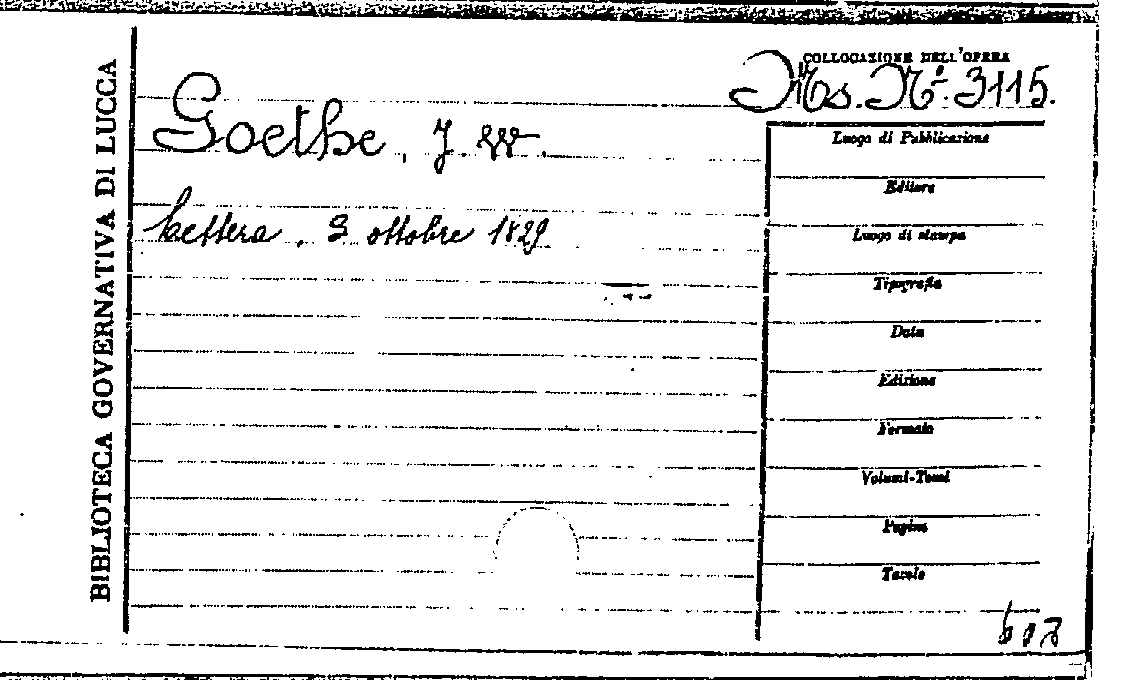 BIBLIOTECA GOVERNATIVA DI LUCCA
COLLOCAZIONE DELL'OPERA
Ms. N.º 3115.
Goethe, J. W.
Lettera, 3 ottobre 1829
Luogo di Pubblicazione
Editore
Luogo di stampa
Tipografia
Data
Edizione
Formato
Volumi-Tomi
Pagine
Tavole